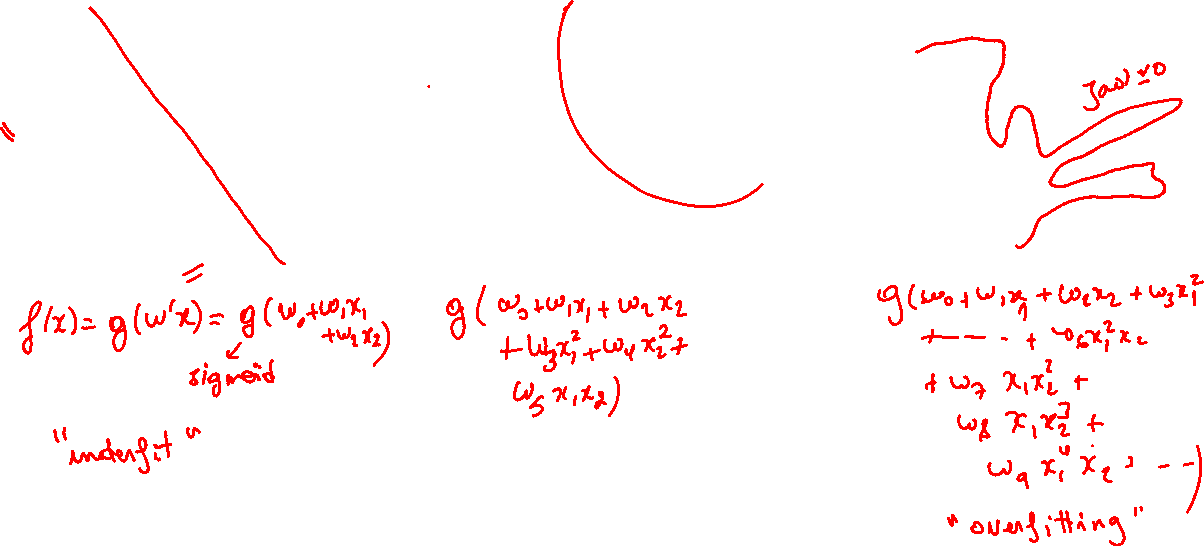 f(x) = g(w'x) = g(w₀+w₁x₁
+w₂x₂)
sigmoid
"underfit"
g(w₀+w₁x₁+w₂x₂
+w₃x₁²+w₄x₂²+
w₅x₁x₂)
J(w)≃0
g(w₀+w₁x₁+w₂x₂+w₃x₁²
+----+w₆x₁²x₂
+w₇ x₁x₂²+
w₈ x₁x₂³+
w₉ x₁⁴x₂, ---)
"overfitting"